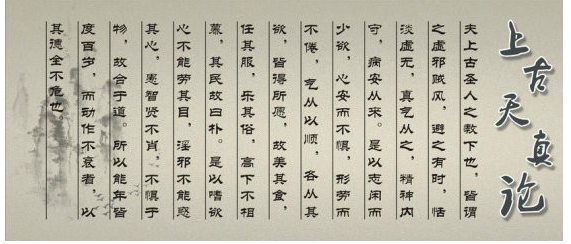 上古天真论
夫上古圣人之教下也，皆谓
之虚邪贼风，避之有时，恬
淡虚无，真气从之，精神内
守，病安从来。是以志闲而
少欲，心安而不惧，形劳而
不倦，气从以顺，各从其
欲，皆得所愿，故美其食，
任其服，乐其俗，高下不相
慕，其民故曰朴。是以嗜欲
心不能劳其目，淫邪不能惑
其心，愚智贤不肖，不惧于
物，故合于道。所以能年皆
度百岁，而动作不衰者，以
其德全不危也。